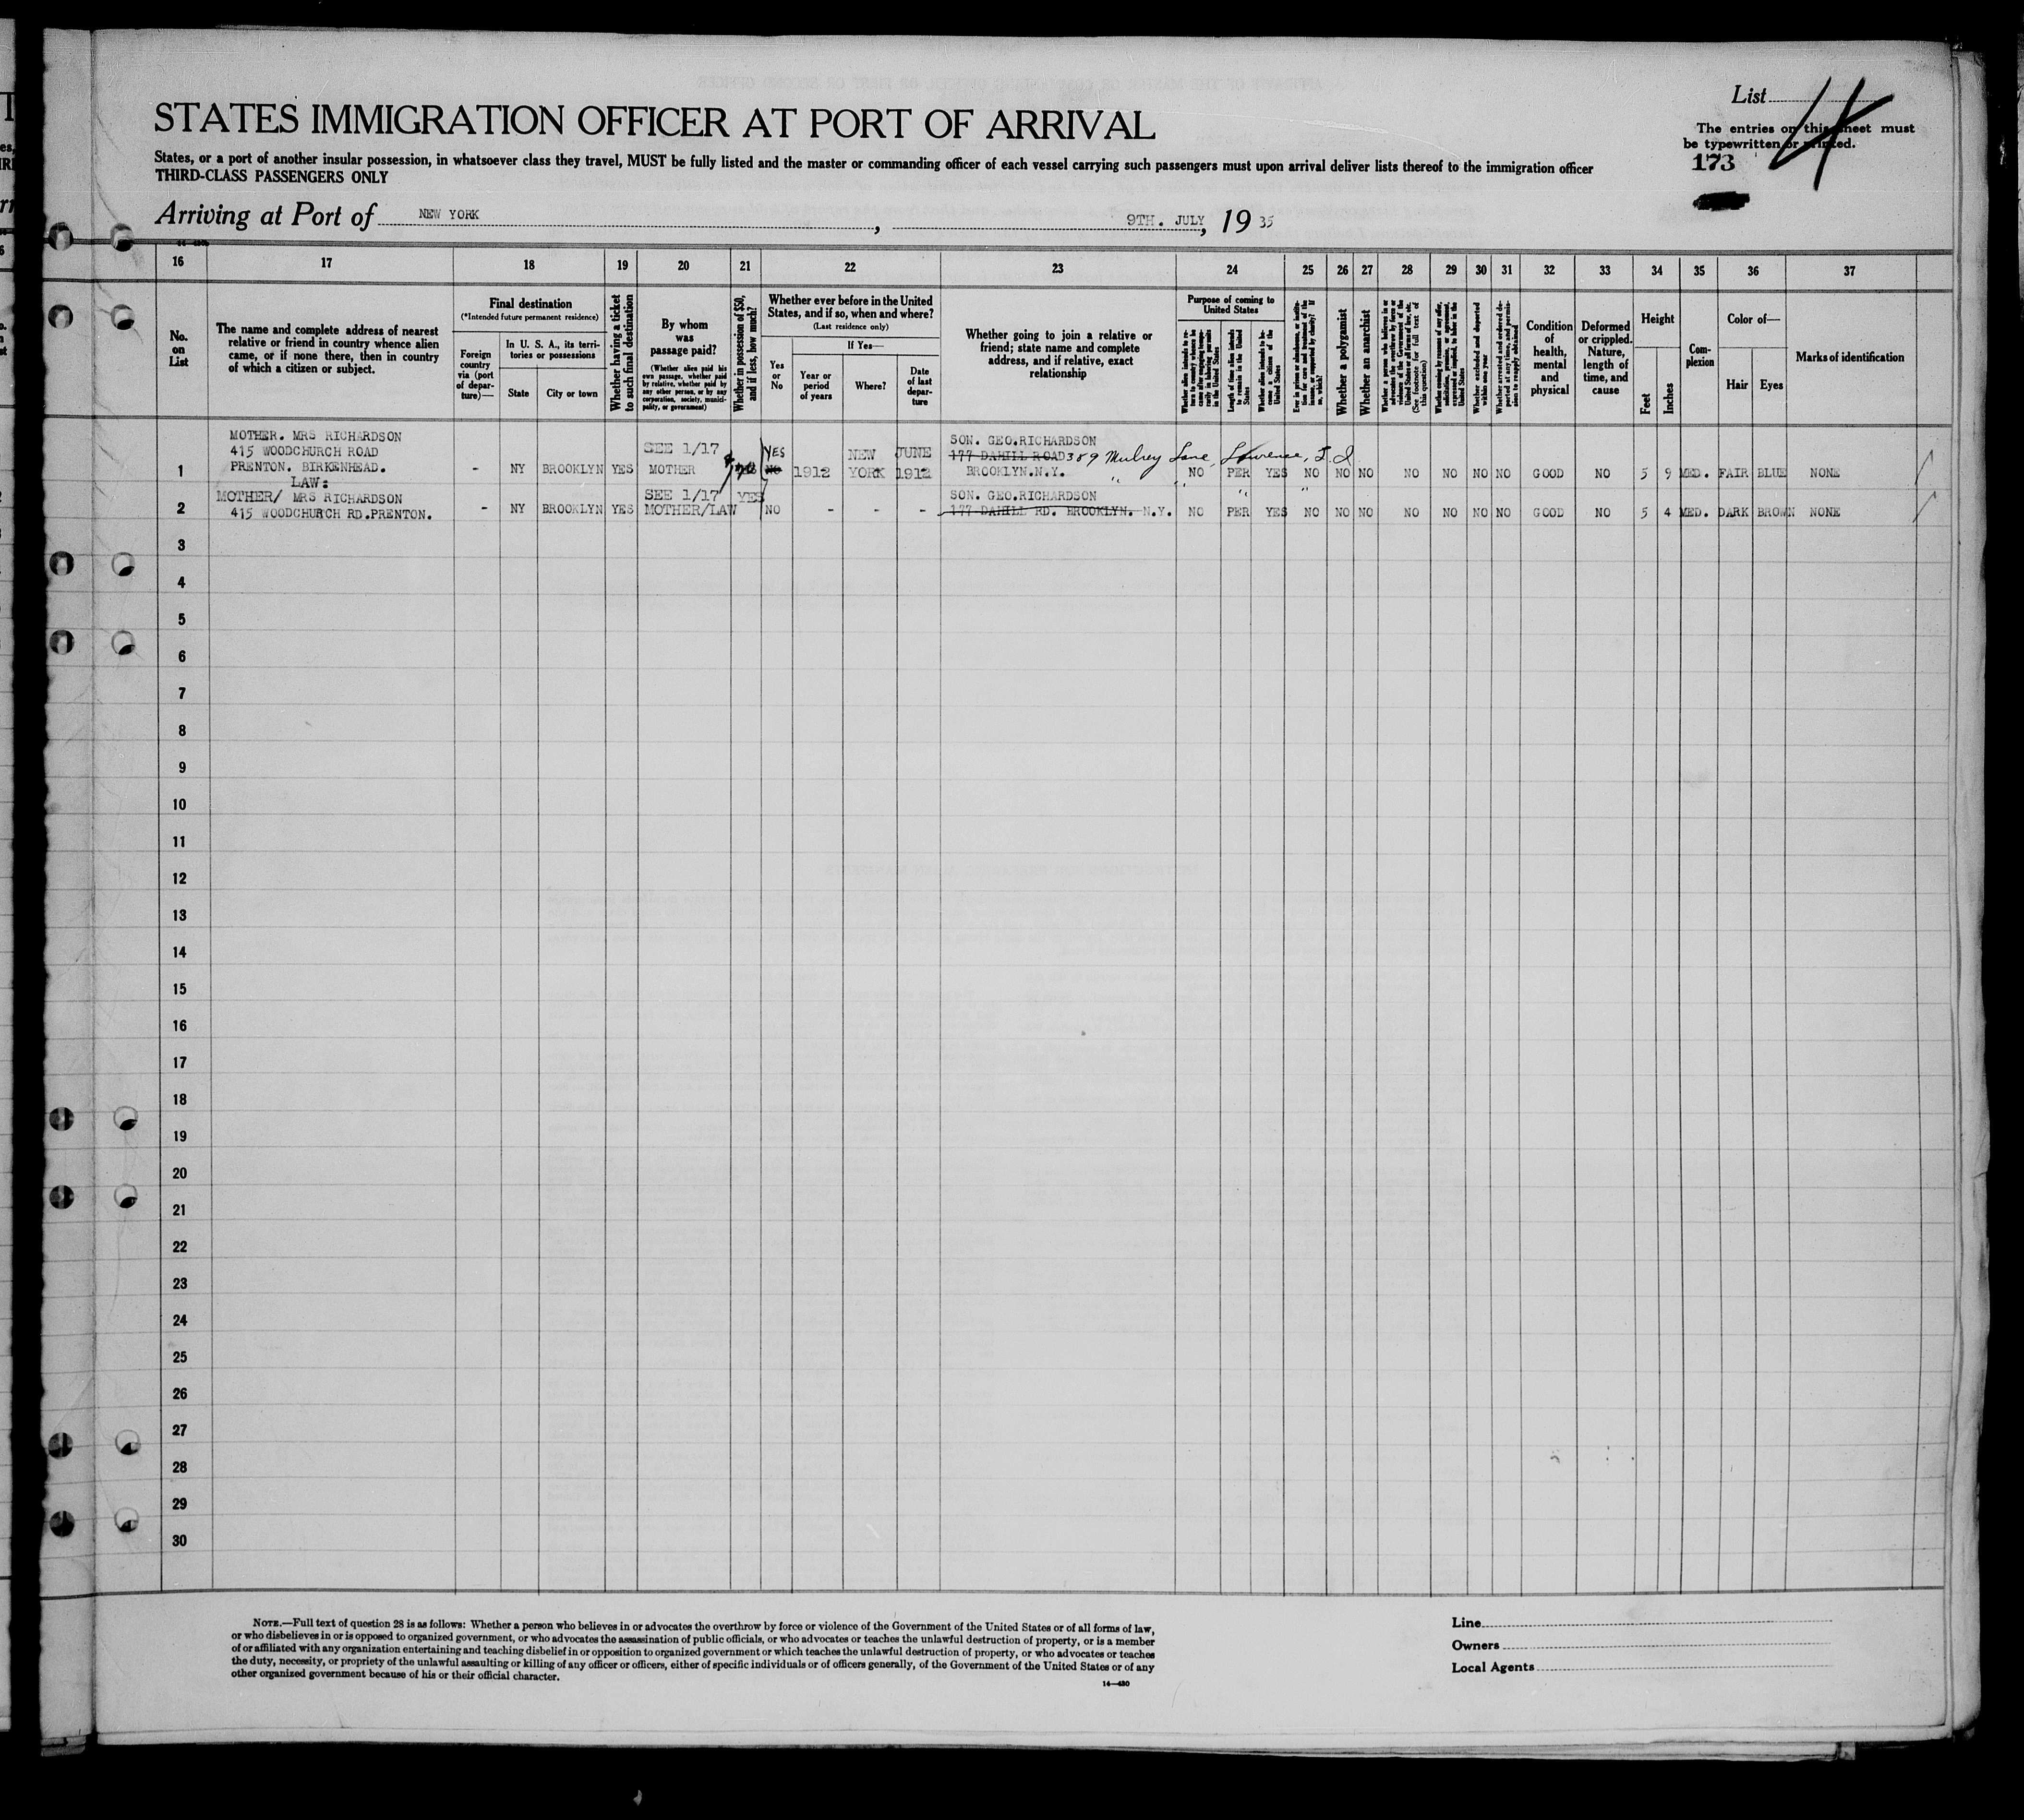 STATES IMMIGRATION OFFICER AT PORT OF ARRIVAL
List 4
The entries on this sheet must
be typewritten or printed.
173
States, or a port of another insular possession, in whatsoever class they travel, MUST be fully listed and the master or commanding officer of each vessel carrying such passengers must upon arrival deliver lists thereof to the immigration officer
THIRD-CLASS PASSENGERS ONLY
Arriving at Port of NEW YORK, 9TH. JULY, 19 35
16 17 18 19 20 21 22 23 24 25 26 27 28 29 30 31 32 33 34 35 36 37
No. on List
The name and complete address of nearest
relative or friend in country whence alien
came, or if none there, then in country
of which a citizen or subject.
Final destination
(*Intended future permanent residence)
Foreign country via (port of departure)—
In U. S. A., its territories or possessions
State
City or town
Whether having a ticket to such final destination
By whom was passage paid?
(Whether alien paid his own passage, whether paid by relative, whether paid by any other person, or by any corporation, society, municipality, or government)
Whether in possession of $50, and if less, how much?
Whether ever before in the United
States, and if so, when and where?
(Last residence only)
Yes or No
If Yes—
Year or period of years
Where?
Date of last departure
Whether going to join a relative or
friend; state name and complete
address, and if relative, exact
relationship
Purpose of coming to United States
Length of time alien intends to remain in the United States
Whether alien intends to become a citizen of the United States
Whether a polygamist
Whether an anarchist
Condition of health, mental and physical
Deformed or crippled. Nature, length of time, and cause
Height
Feet
Inches
Complexion
Color of—
Hair
Eyes
Marks of identification
MOTHER. MRS RICHARDSON SEE 1/17 YES NEW JUNE SON. GEO.RICHARDSON
415 WOODCHURCH ROAD 177 DAHILL ROAD 389 Mulrey Lane, Lawrence, L I
1 PRENTON. BIRKENHEAD. - NY BROOKLYN YES MOTHER NO 1912 YORK 1912 BROOKLYN.N.Y. NO PER YES NO NO NO NO NO NO NO GOOD NO 5 9 MED. FAIR BLUE NONE
LAW:
MOTHER/ MRS RICHARDSON SEE 1/17 YES SON. GEO.RICHARDSON " " " "
2 415 WOODCHURCH RD.PRENTON. - NY BROOKLYN YES MOTHER/LAW NO - - - 177 DAHILL RD. BROOKLYN. N.Y. NO PER YES NO NO NO NO NO NO NO GOOD NO 5 4 MED. DARK BROWN NONE
3
4
5
6
7
8
9
10
11
12
13
14
15
16
17
18
19
20
21
22
23
24
25
26
27
28
29
30
NOTE.—Full text of question 28 is as follows: Whether a person who believes in or advocates the overthrow by force or violence of the Government of the United States or of all forms of law,
or who disbelieves in or is opposed to organized government, or who advocates the assassination of public officials, or who advocates or teaches the unlawful destruction of property, or is a member
of or affiliated with any organization entertaining and teaching disbelief in or opposition to organized government or which teaches the unlawful destruction of property, or who advocates or teaches
the duty, necessity, or propriety of the unlawful assaulting or killing of any officer or officers, either of specific individuals or of officers generally, of the Government of the United States or of any
other organized government because of his or their official character.
14—430
Line
Owners
Local Agents